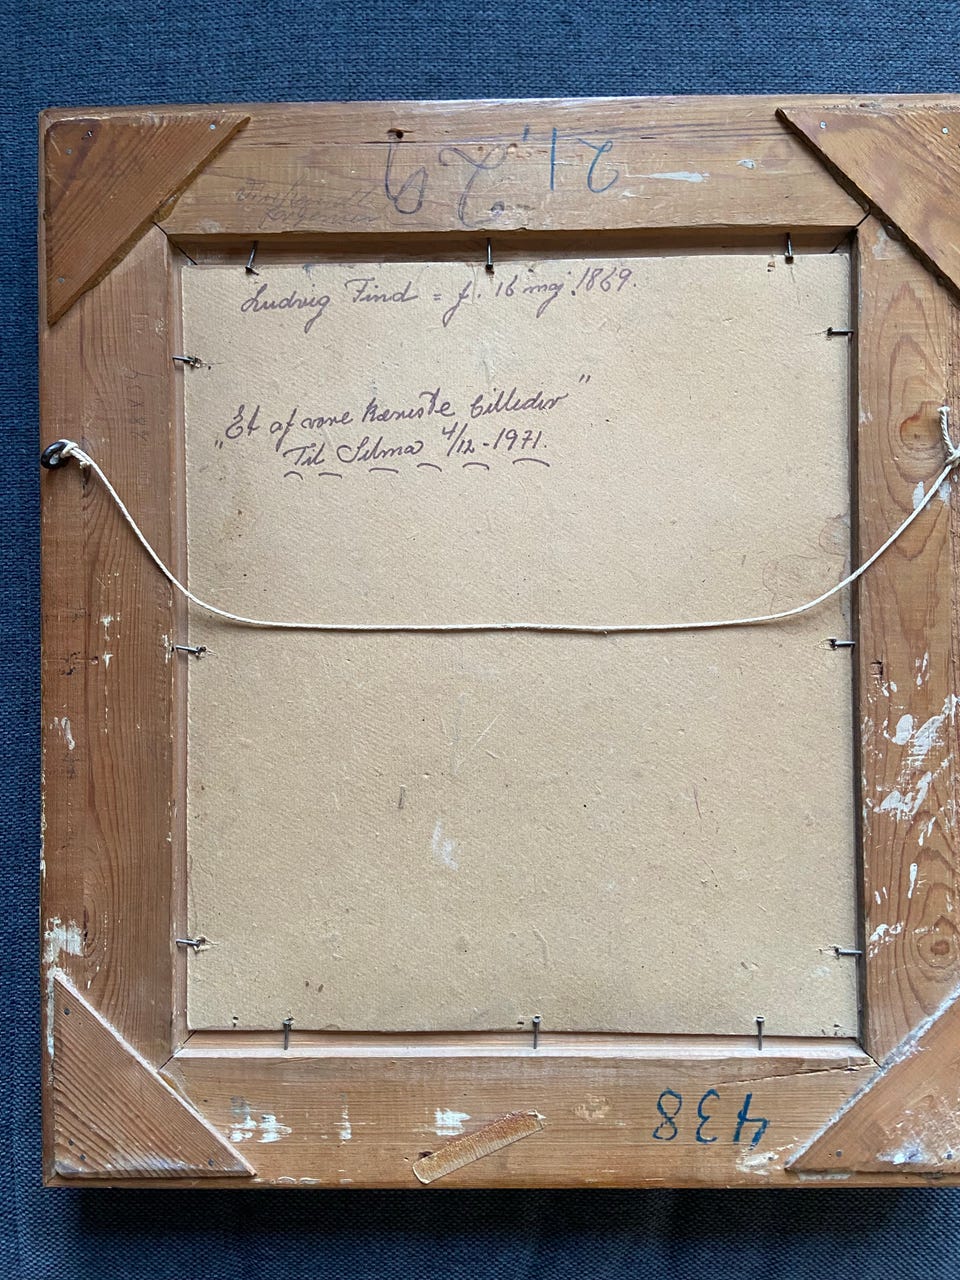 Ludvig Find = f. 16 maj. 1869.
"Et af vore kæreste billeder"
Til Selma 4/12-1971.
438